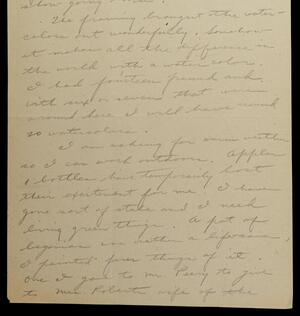 show going & one
The framing brought the water-
colors out wonderfully. Somehow
it makes all the difference in
the world with a water color.
I had fourteen framed and
with six or seven that were
around here I will have around
20 watercolors.
I am asking for warm weather
so I can work outdoors. Apples
& bottles have temporarily lost
their excitement for me. I have
gone sort of stale and I need
living green things. A pot of
begonias was within a
I painted four things of it.
One I gave to Mr. Perry to give
to Miss Roberts wife of the